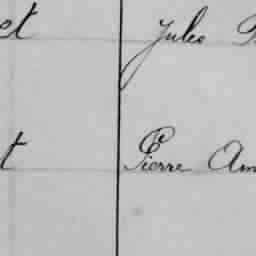 et Jules
t Pierre Am